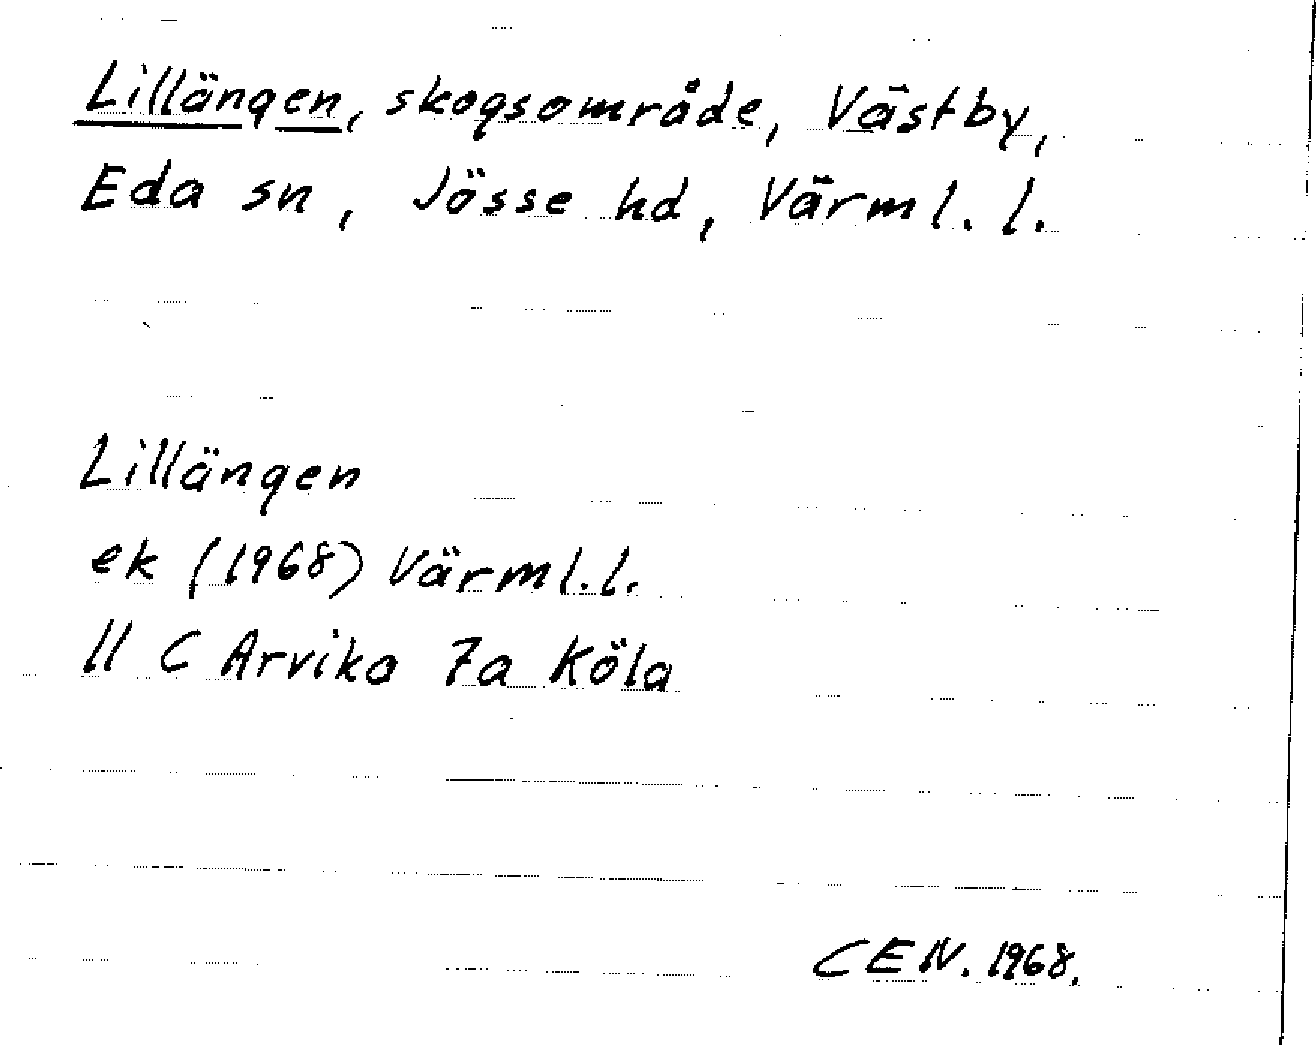 Lillängen, skogsområde, Västby,
Eda sn, Jösse hd, Värml. l.
Lillängen
ek (1968) Värml.l.
11 C Arvika 7a Köla
CEN. 1968.